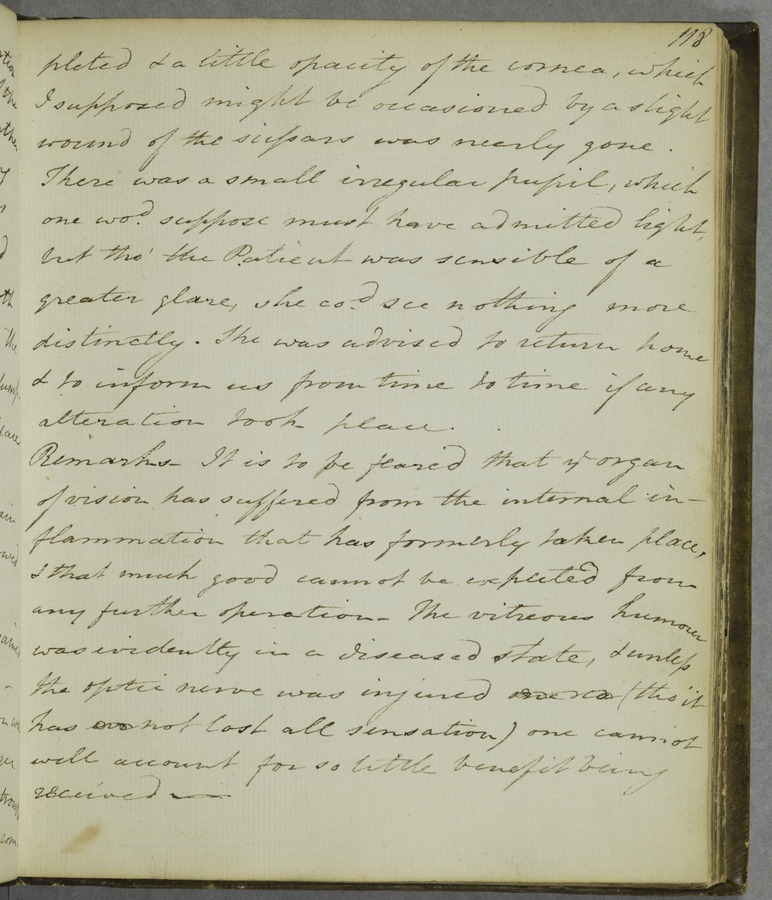 118
pleted & a little opacity of the cornea, which
I supposed might be occasioned by a slight
wound of the scissars was nearly gone.
There was a small irregular pupil, which
one wod. suppose must have admitted light,
but tho' the Patient was sensible of a
greater glare, she cod. see nothing more
distinctly. She was advised to return home
& to inform us from time to time if any
alteration took place.
Remarks - It is to be feared that ye organ
of vision has suffered from the internal in-
flammation that has formerly taken place,
& that much good cannot be expected from
any further operation - The vitreous humour
was evidently in a diseased state, & unless
the optic nerve was injured (tho' it
has not lost all sensation) one cannot
well account for so little benefit being
received